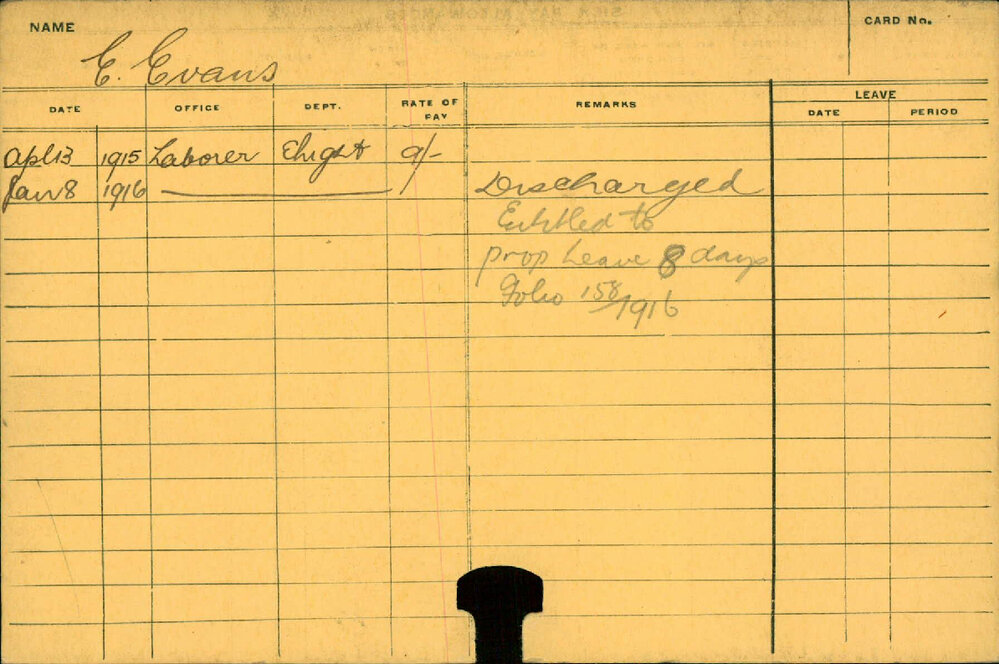 NAME
CARD No.
E. Evans
DATE
OFFICE
DEPT.
RATE OF PAY
REMARKS
LEAVE
DATE
PERIOD
Apl 13 1915 Laborer Elight 9/-
Jan 8 1916
Discharged
Entitled to
prop Leave 8 days
Folio 158/1916